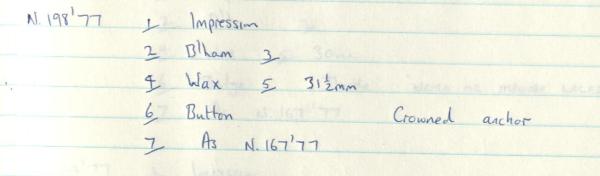 N. 198'77 1 Impression
2 B'ham 3
4 Wax 5 31½mm
6 Button Crowned anchor
7 As N. 167'77